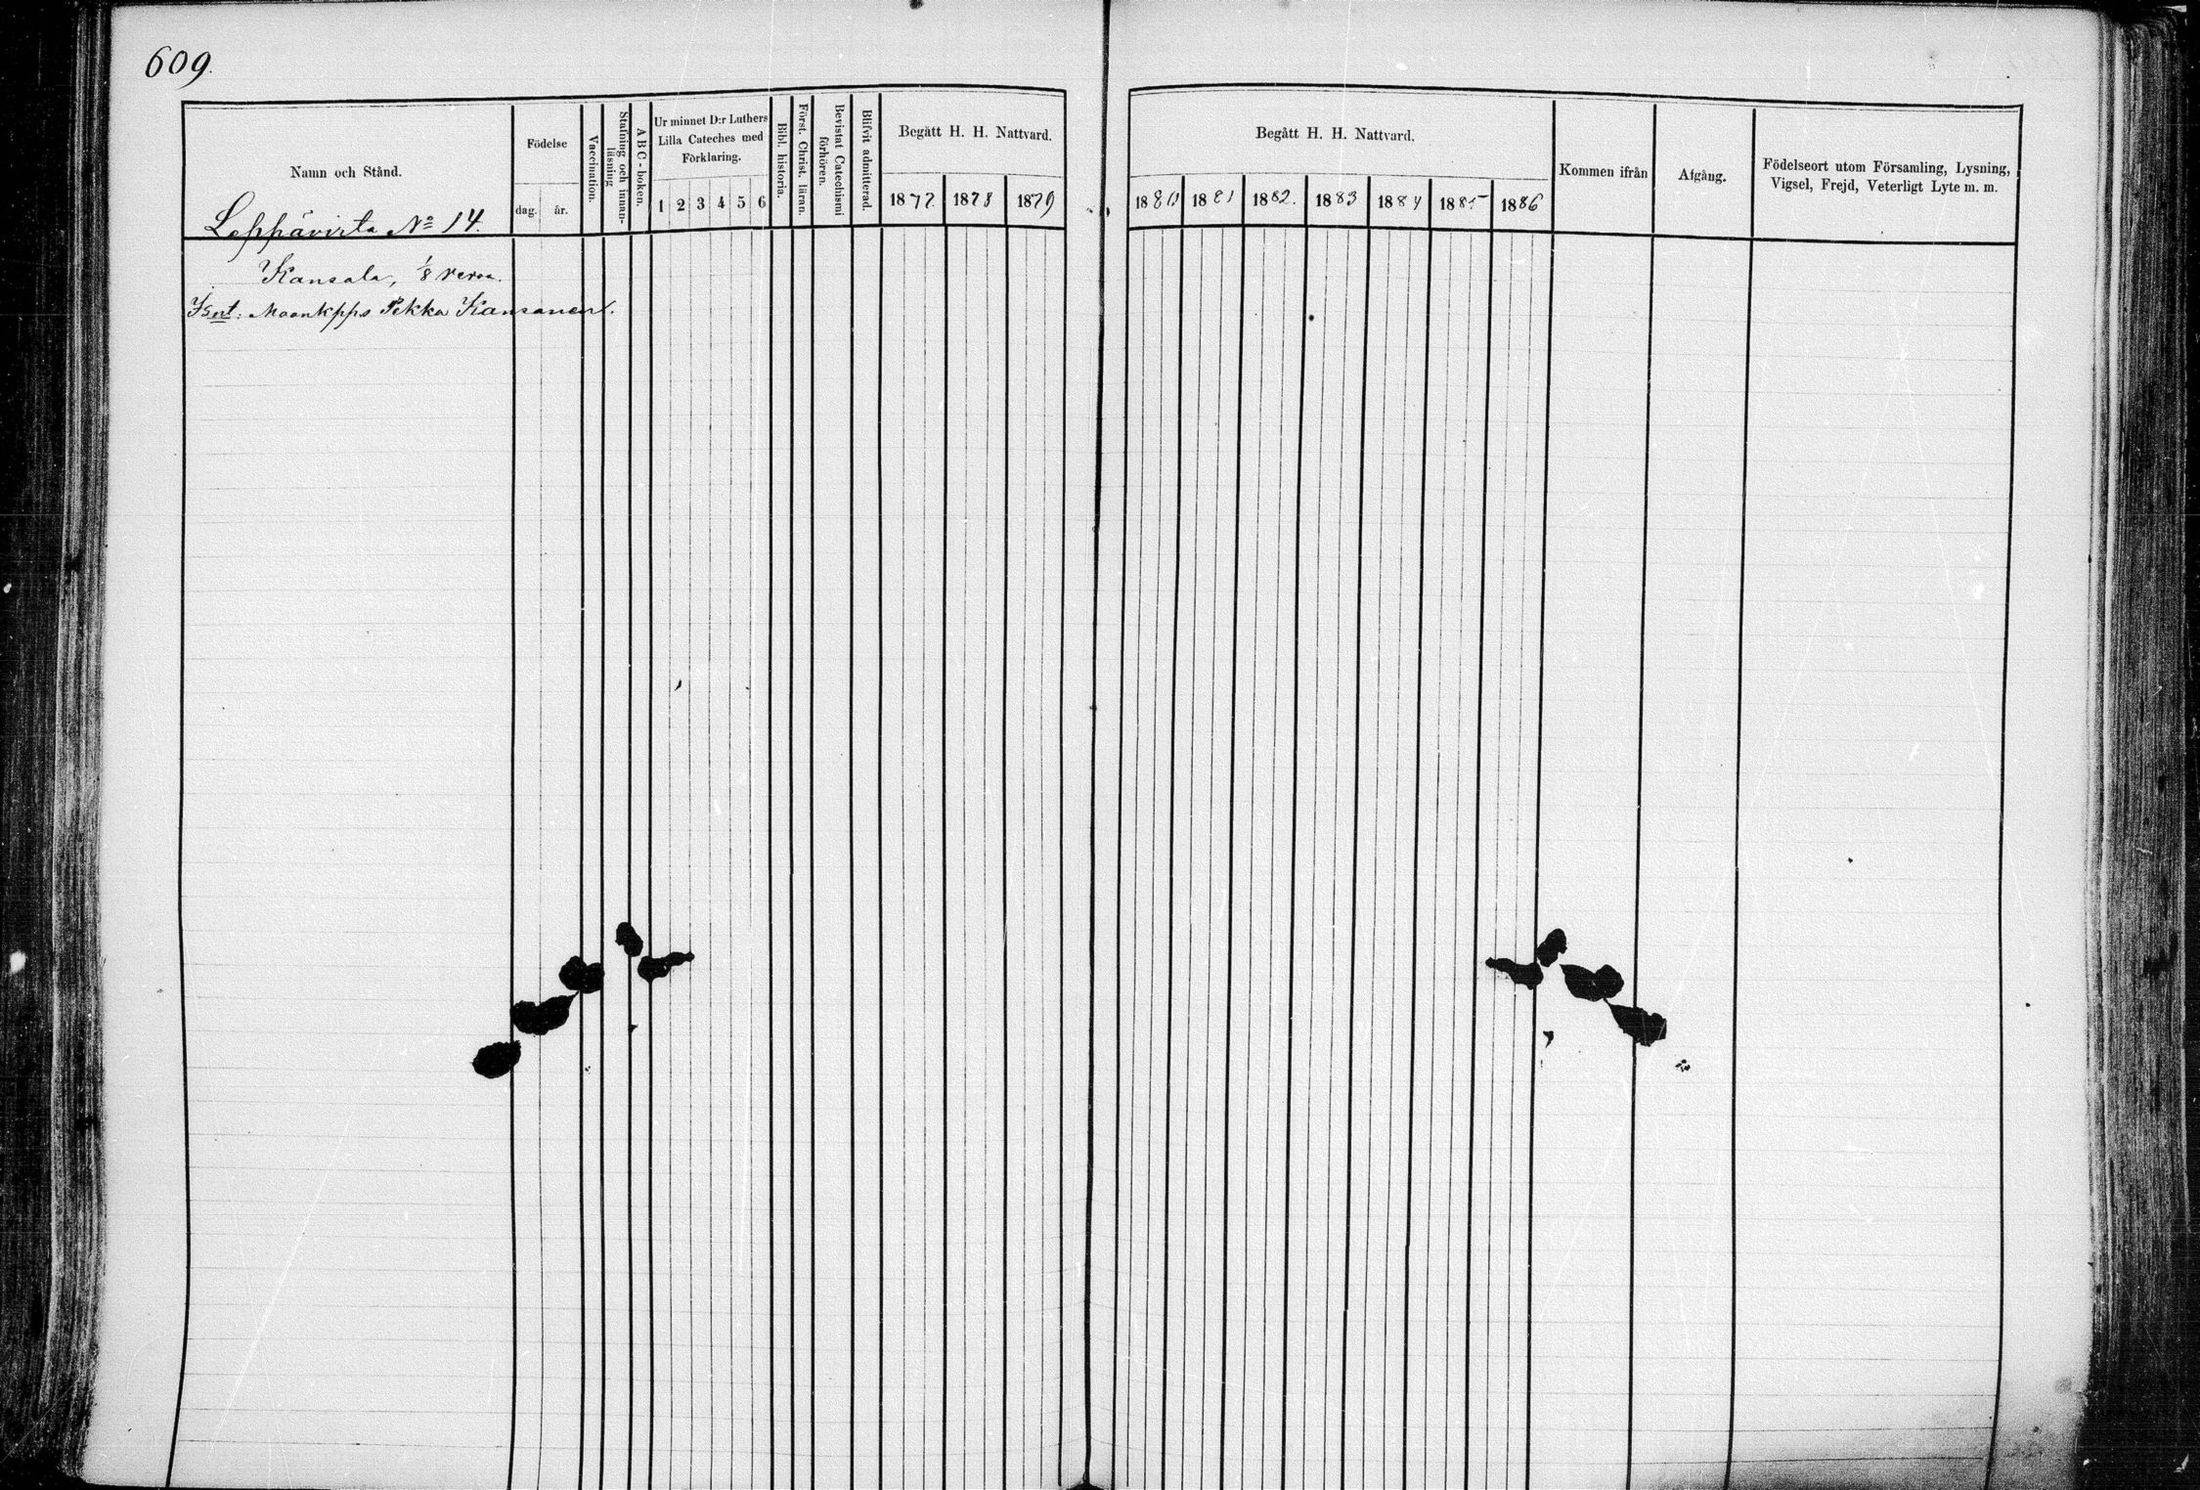 609.
Namn och Stånd.
Födelse
dag.
år.
Vaccination.
Stafning och innan-
läsning
ABC-boken.
Ur minnet D:r Luthers
Lilla Cateches med
Förklaring.
1 2 3 4 5 6
Bibl. historia.
Först. Christ. läran.
Bevistat Catechismi
förhören.
Blifvit admitterad.
Begått H. H. Nattvard.
1877. 1878 1879
Begått H. H. Nattvard.
1880 1881 1882. 1883 1884 1885 1886
Kommen ifrån
Afgång.
Födelseort utom Församling, Lysning,
Vigsel, Frejd, Veterligt Lyte m. m.
Leppävirta No 14.
Kansala, 1/8 veroa.
Isent: Maankpps Pekka Kansanen.